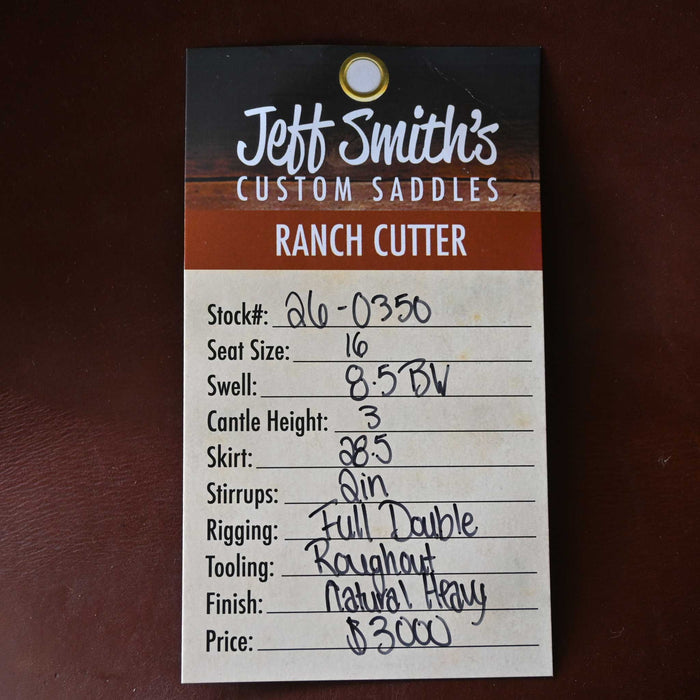 Jeff Smith's
CUSTOM SADDLES
RANCH CUTTER
Stock#: 26-0350
Seat Size: 16
Swell: 8.5 BW
Cantle Height: 3
Skirt: 28.5
Stirrups: 2in
Rigging: Full Double
Tooling: Roughout
Finish: Natural Heavy
Price: $3000